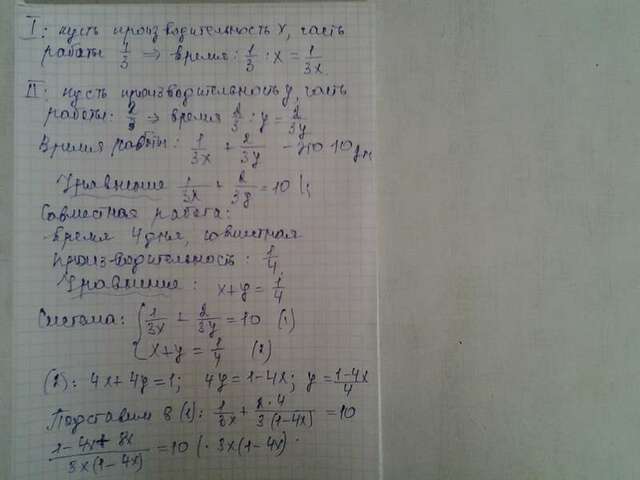 I: пусть производительность x, часть
работы 1/3 ⇒ время: 1/3 : x = 1/3x
II: пусть производительность y, часть
работы: 2/3 ⇒ время 2/3 : y = 2/3y
Время работы: 1/3x + 2/3y - это 10 дн
Уравнение 1/3x + 2/3y = 10
Совместная работа:
время 4 дня, совместная
производительность: 1/4
Уравнение: x+y = 1/4
Система: { 1/3x + 2/3y = 10 (1)
x+y = 1/4 (2)
(2): 4x+4y=1; 4y=1-4x; y= 1-4x/4
Подставим в (1): 1/3x + 2·4/3(1-4x) = 10
1-4x+8x/3x(1-4x) = 10 (· 3x(1-4x)